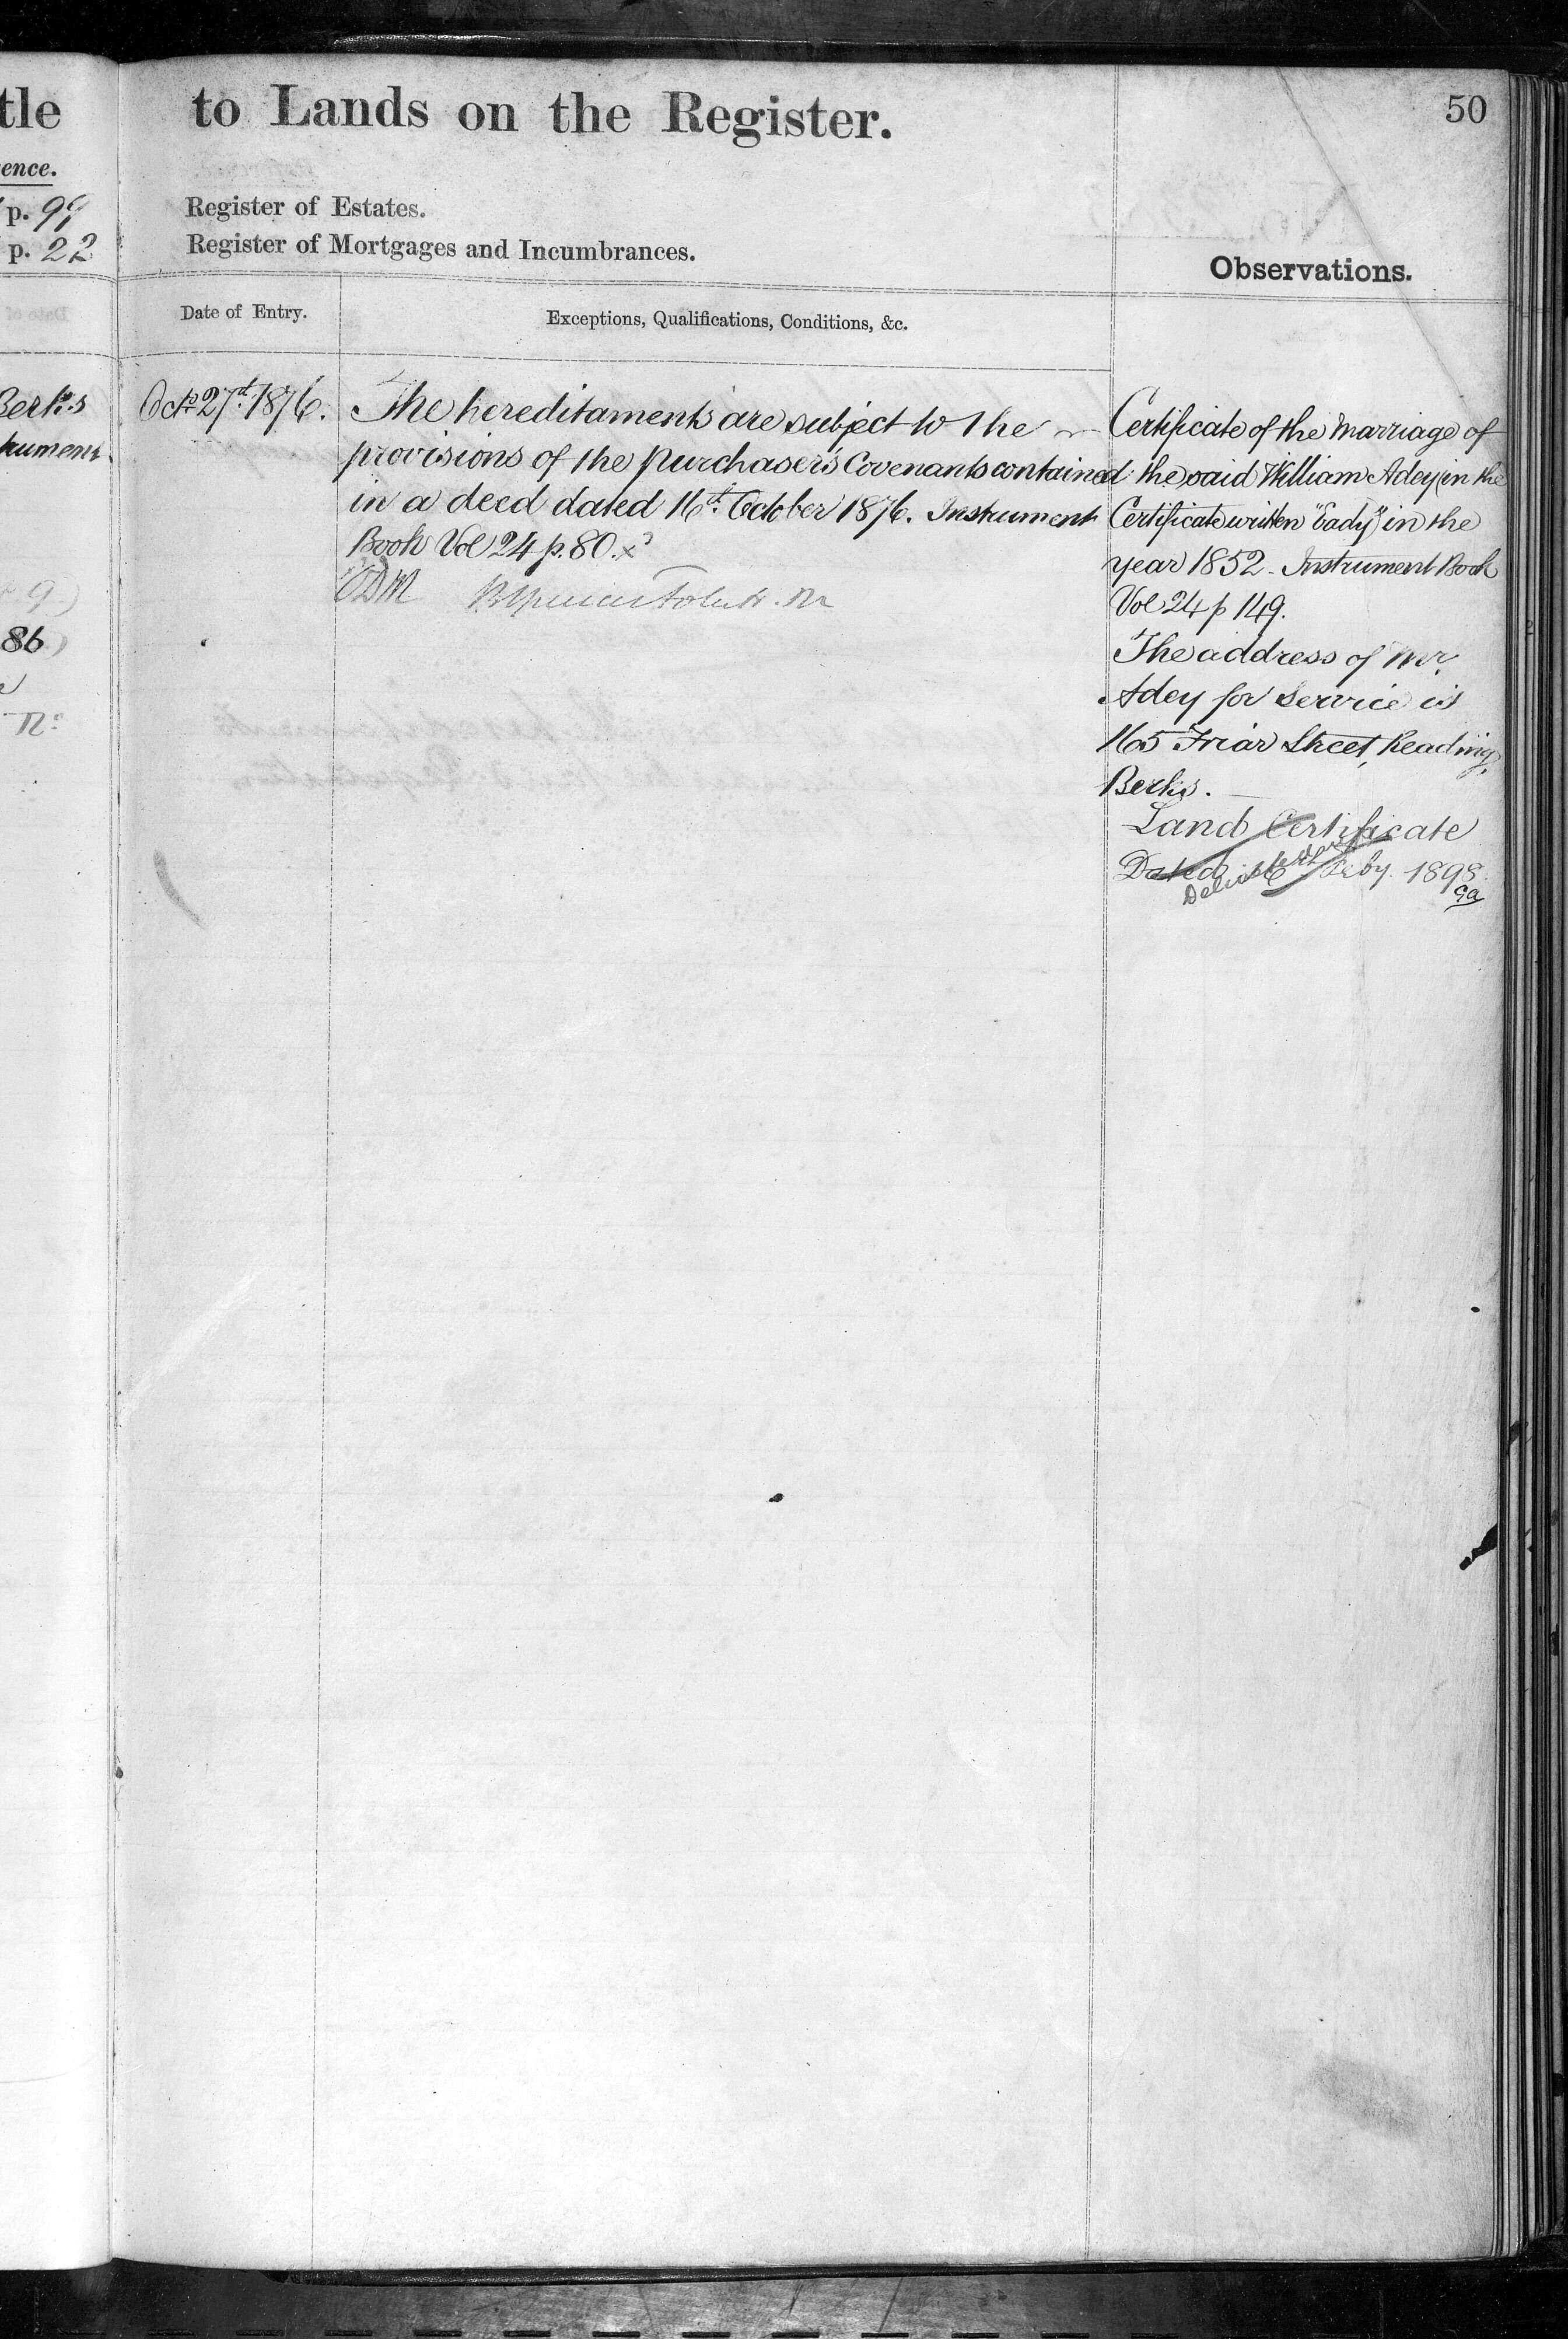 tle
ence.
p. 99
p. 22
Berks
trument
86)
to Lands on the Register.
50
Register of Estates.
Register of Mortgages and Incumbrances.
Observations.
Date of Entry.
Exceptions, Qualifications, Conditions, &c.
Octr 27th 1876.
The hereditaments are subject to the
provisions of the purchaser's Covenants contained
in a deed dated 16th October 1876. Instrument
Book Vol 24 p. 80. x
Certificate of the Marriage of
the said William Adey (in the
Certificate written "Eady") in the
year 1852 - Instrument Book
Vol 24 p 149.
The address of Mr
Adey for service is
165 Friar Street, Reading,
Berks.
Land Certificate
Dated 16th Feby. 1898.
Delivered